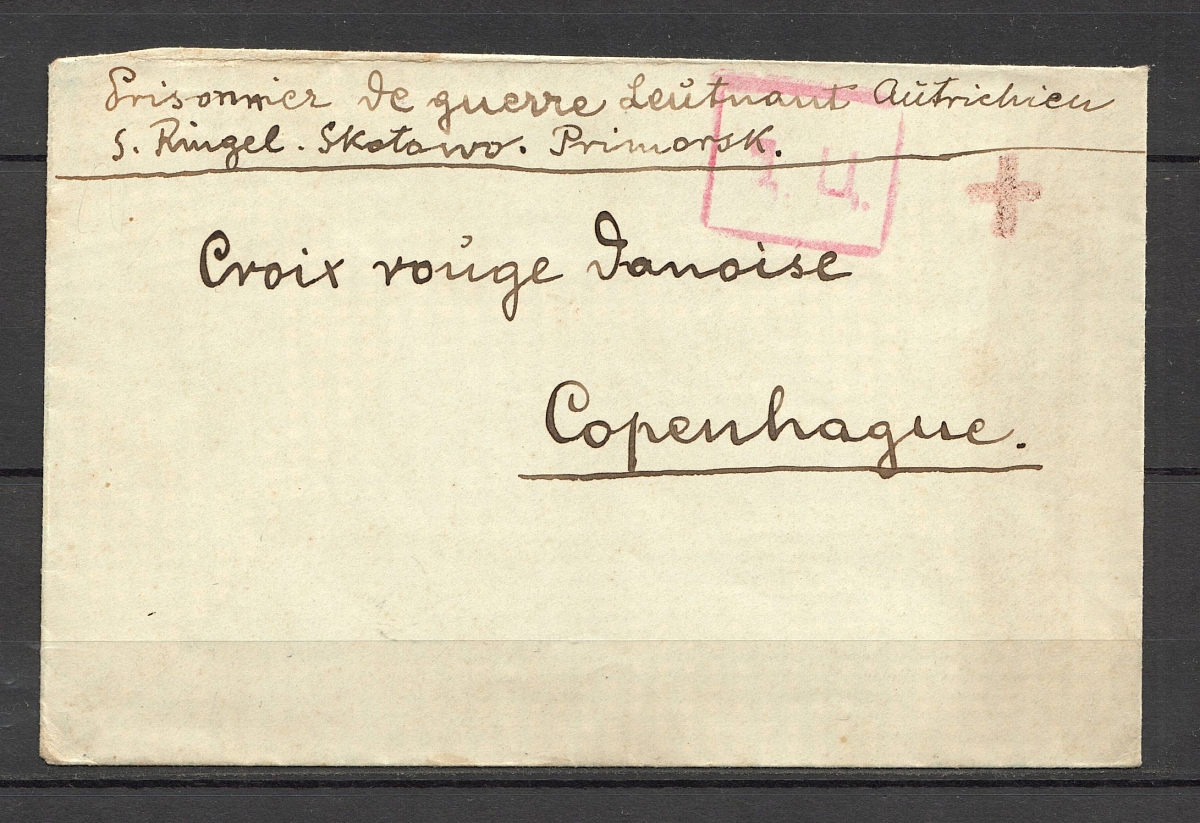 Prisonnier de guerre Leutnant Autrichien
S. Ringel. Skotowo. Primorsk.
З. Ц.
Croix rouge danoise
Copenhague.